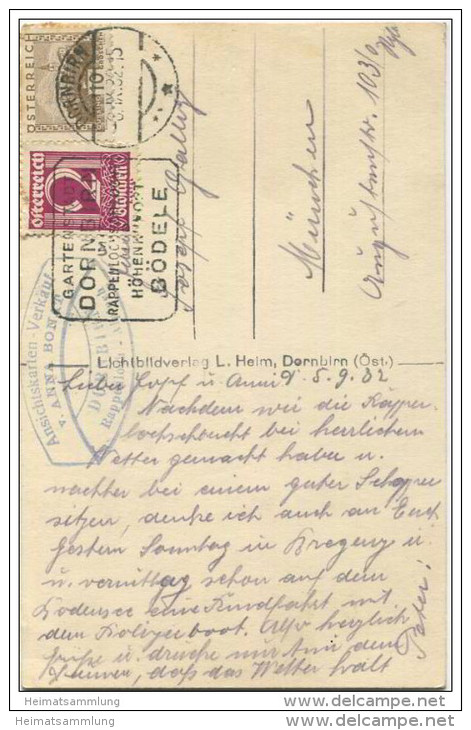 ÖSTERREICH
DORNBIRN
110
Österreich
2
Groschen
GARTENSTADT
DORNBIRN
RAPPENLOCH
HÖHENKURORT
BÖDELE
Ansichtskarten-Verkauf
v. ANNA
DORNBIRN
Josef
München
Augustenstr. 103/0
Lichtbildverlag L. Heim, Dornbirn (Öst.)
5.9.32
Nachdem wir die Rappen
lochschlucht bei herrlichem
Wetter gemacht haben u.
nachher bei einem guten Schoppen
sitzen, denke ich auch an Euch
gestern Sonntag in Bregenz u.
u. vormittag schon auf dem
Bodensee eine Rundfahrt mit
dem Polizeiboot. Also herzlich
grüße u. drücke mir den
Daumen, daß das Wetter hält
Peter!
Heimatsammlung
Heimatsammlung
www.delcampe.net